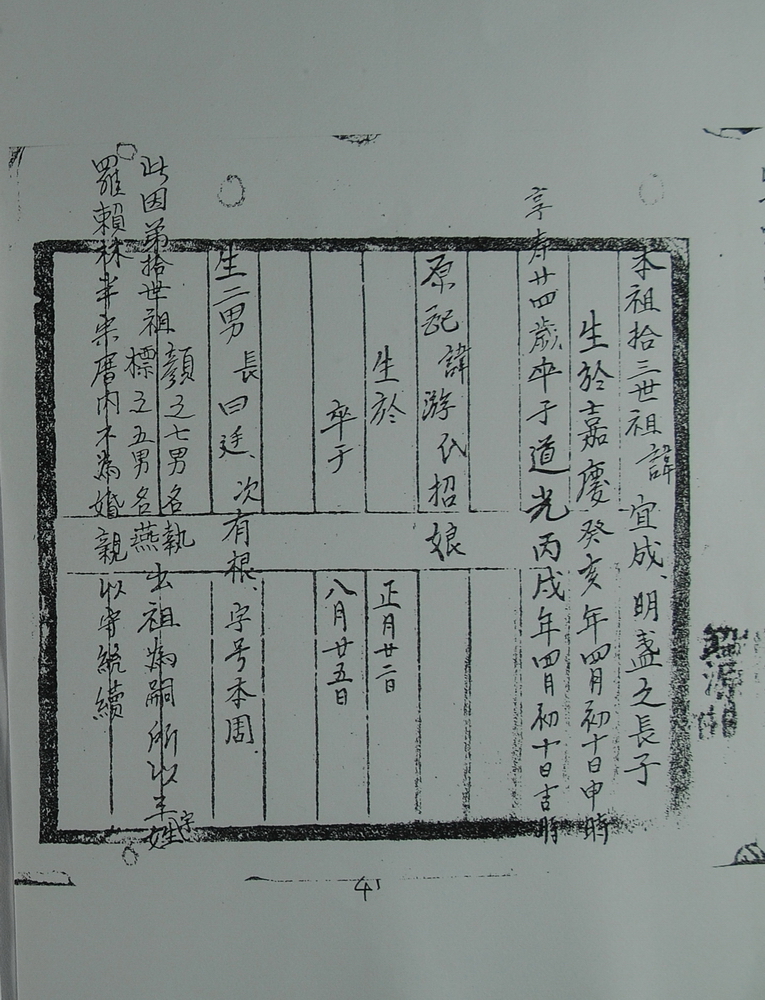 本祖拾三世祖諱宜成、明盞之長子
生於嘉慶癸亥年四月初十日申時
享壽廿四歲卒于道光丙戌年四月初十日吉時
原配諱游氏招娘
生於 正月廿二日
卒于 八月廿五日
生二男 長曰廷、次有根、字号本周
此因弟拾世祖
顏之七男名執
標之五男名燕
出祖為嗣所以三姓字
羅賴林 宗厝內不為婚親以守統續
4
源